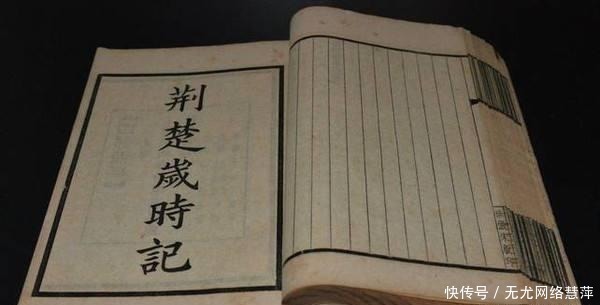 荆楚歲時記
快传号／无尤网络慧萍